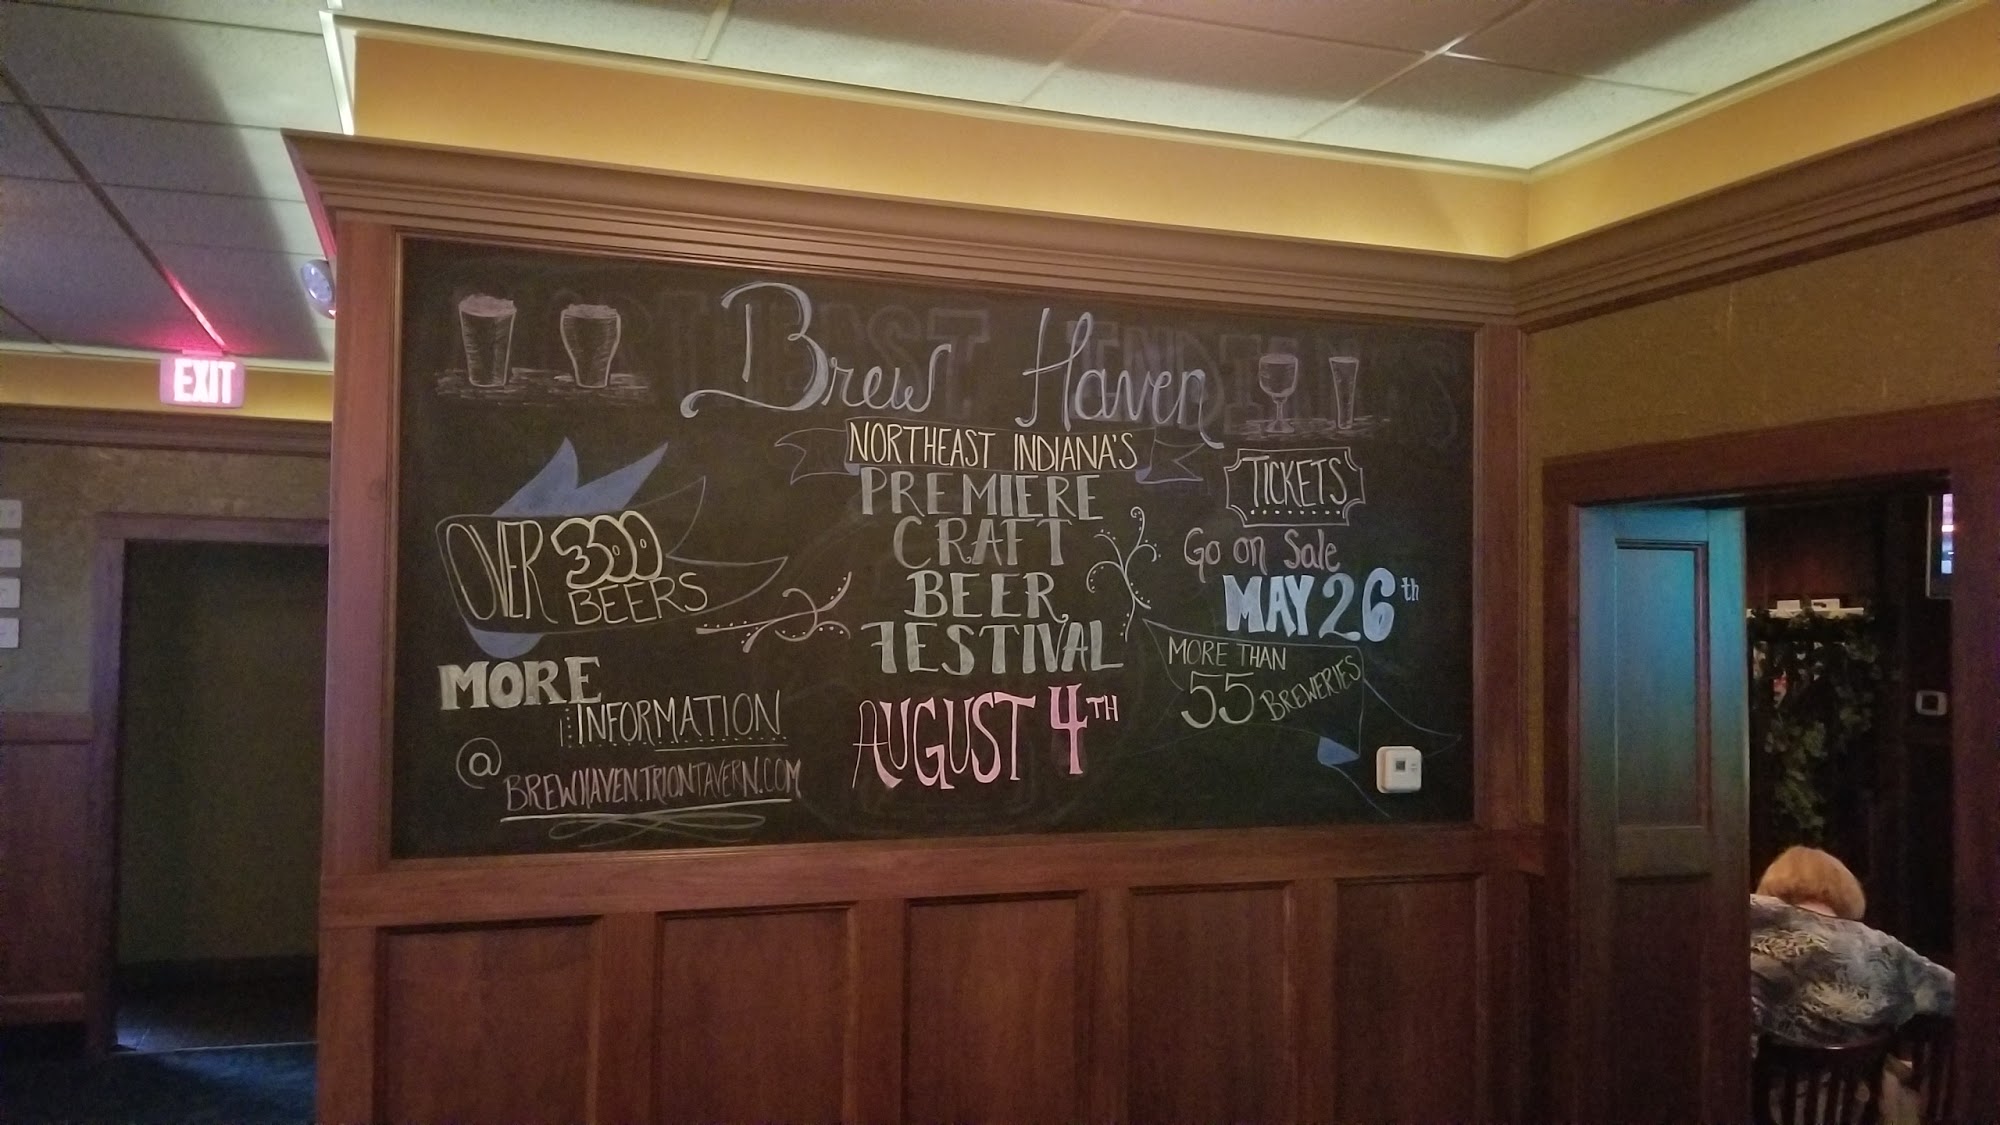 EXIT
Brew Haven
NORTHEAST INDIANA'S
PREMIERE
CRAFT
BEER
FESTIVAL
AUGUST 4TH
OVER 300
BEERS
MORE
INFORMATION
@
BREWHAVEN.TRIONTAVERN.COM
TICKETS
Go on Sale
MAY 26th
MORE THAN
55 BREWERIES